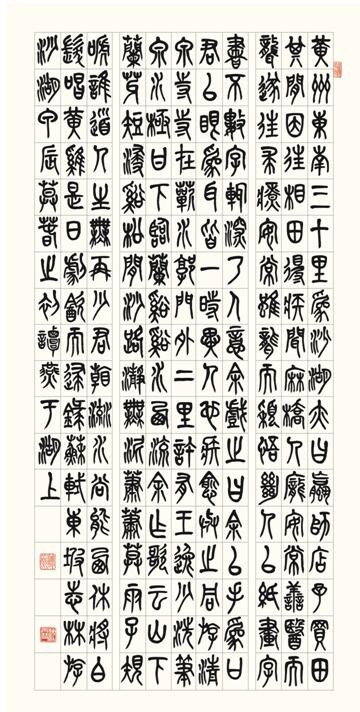 黄州東南三十里為沙湖亦曰螺師店予買田
其間因往相田得疾聞麻橋人龐安常善醫而
聾遂往求療安常雖聾而穎悟絕人以紙畫字
書不數字輒深了人意余戲之曰余以手為口
君以眼為耳皆一時異人也疾愈與之同游清
泉寺寺在蘄水郭門外二里許有王逸少洗筆
泉水極甘下臨蘭谿谿水西流余作歌云山下
蘭芽短浸谿松間沙路瀞無泥蕭蕭莫雨子規
嗁誰道人生無再少君看流水尚能西休將白
髮唱黄雞是日劇飲而歸錄蘇軾東坡志林游
沙湖甲辰莫春之初譚燕于湖上